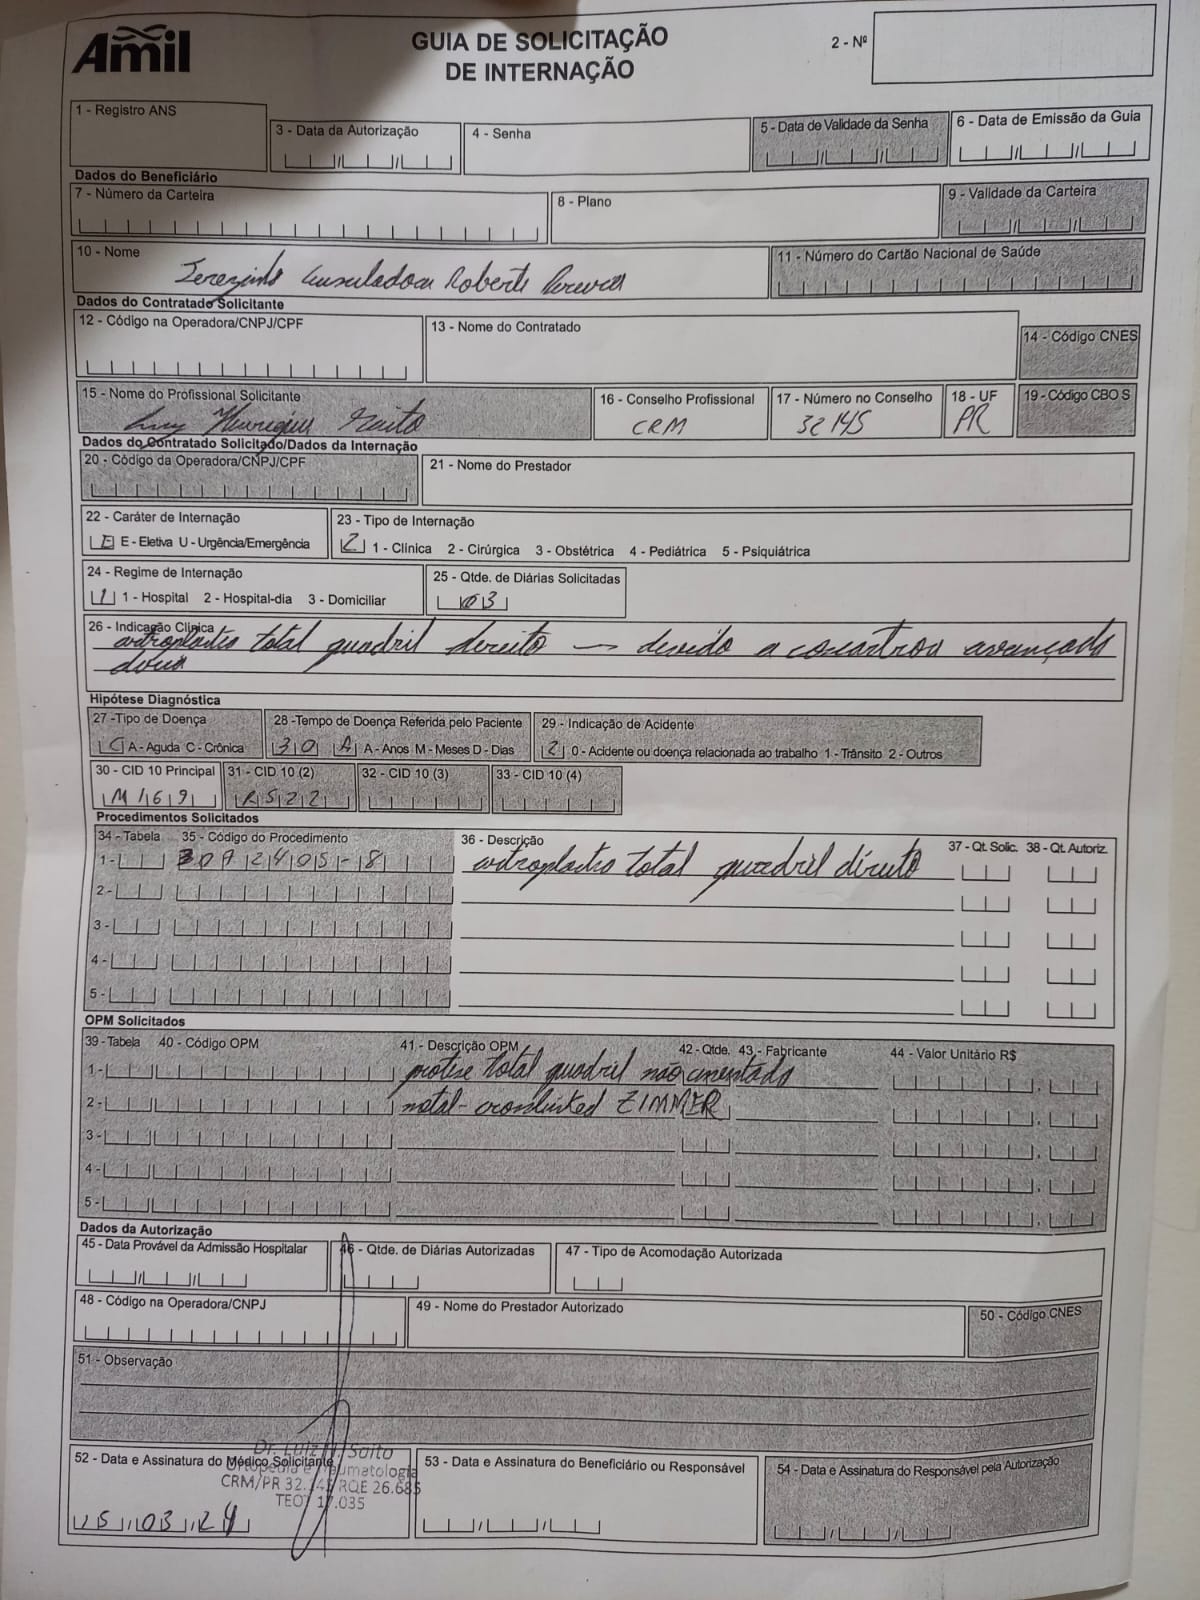 Amil
GUIA DE SOLICITAÇÃO
DE INTERNAÇÃO
2 - Nº
1 - Registro ANS
3 - Data da Autorização
4 - Senha
5 - Data de Validade da Senha
6 - Data de Emissão da Guia
Dados do Beneficiário
7 - Número da Carteira
8 - Plano
9 - Validade da Carteira
10 - Nome
Roberto
11 - Número do Cartão Nacional de Saúde
Dados do Contratado Solicitante
12 - Código na Operadora/CNPJ/CPF
13 - Nome do Contratado
14 - Código CNES
15 - Nome do Profissional Solicitante
Luiz Henrique Saito
16 - Conselho Profissional
CRM
17 - Número no Conselho
32145
18 - UF
PR
19 - Código CBO S
Dados do Contratado Solicitado/Dados da Internação
20 - Código da Operadora/CNPJ/CPF
21 - Nome do Prestador
22 - Caráter de Internação
E E - Eletiva U - Urgência/Emergência
23 - Tipo de Internação
2 1 - Clínica 2 - Cirúrgica 3 - Obstétrica 4 - Pediátrica 5 - Psiquiátrica
24 - Regime de Internação
1 1 - Hospital 2 - Hospital-dia 3 - Domiciliar
25 - Qtde. de Diárias Solicitadas
03
26 - Indicação Clínica
artroplastia total quadril direito — devido a coxartrose avançada
Hipótese Diagnóstica
27 -Tipo de Doença
C A - Aguda C - Crônica
28 -Tempo de Doença Referida pelo Paciente
30 A A - Anos M - Meses D - Dias
29 - Indicação de Acidente
2 0 - Acidente ou doença relacionada ao trabalho 1 - Trânsito 2 - Outros
30 - CID 10 Principal
M169
31 - CID 10 (2)
R522
32 - CID 10 (3)
33 - CID 10 (4)
Procedimentos Solicitados
34 - Tabela 35 - Código do Procedimento
36 - Descrição
37 - Qt. Solic. 38 - Qt. Autoriz.
1 - 30724058 artroplastia total quadril direito
2 -
3 -
4 -
5 -
OPM Solicitados
39 - Tabela 40 - Código OPM
41 - Descrição OPM
42 - Qtde. 43 - Fabricante
44 - Valor Unitário R$
1 - protese total quadril não cimentada
2 - metal-crosslinked ZIMMER
3 -
4 -
5 -
Dados da Autorização
45 - Data Provável da Admissão Hospitalar
46 - Qtde. de Diárias Autorizadas
47 - Tipo de Acomodação Autorizada
48 - Código na Operadora/CNPJ
49 - Nome do Prestador Autorizado
50 - Código CNES
51 - Observação
52 - Data e Assinatura do Médico Solicitante
Dr. Luiz H. Saito
Ortopedia e Traumatologia
CRM/PR 32.145 RQE 26.685
TEOT 17.035
05 03 24
53 - Data e Assinatura do Beneficiário ou Responsável
54 - Data e Assinatura do Responsável pela Autorização